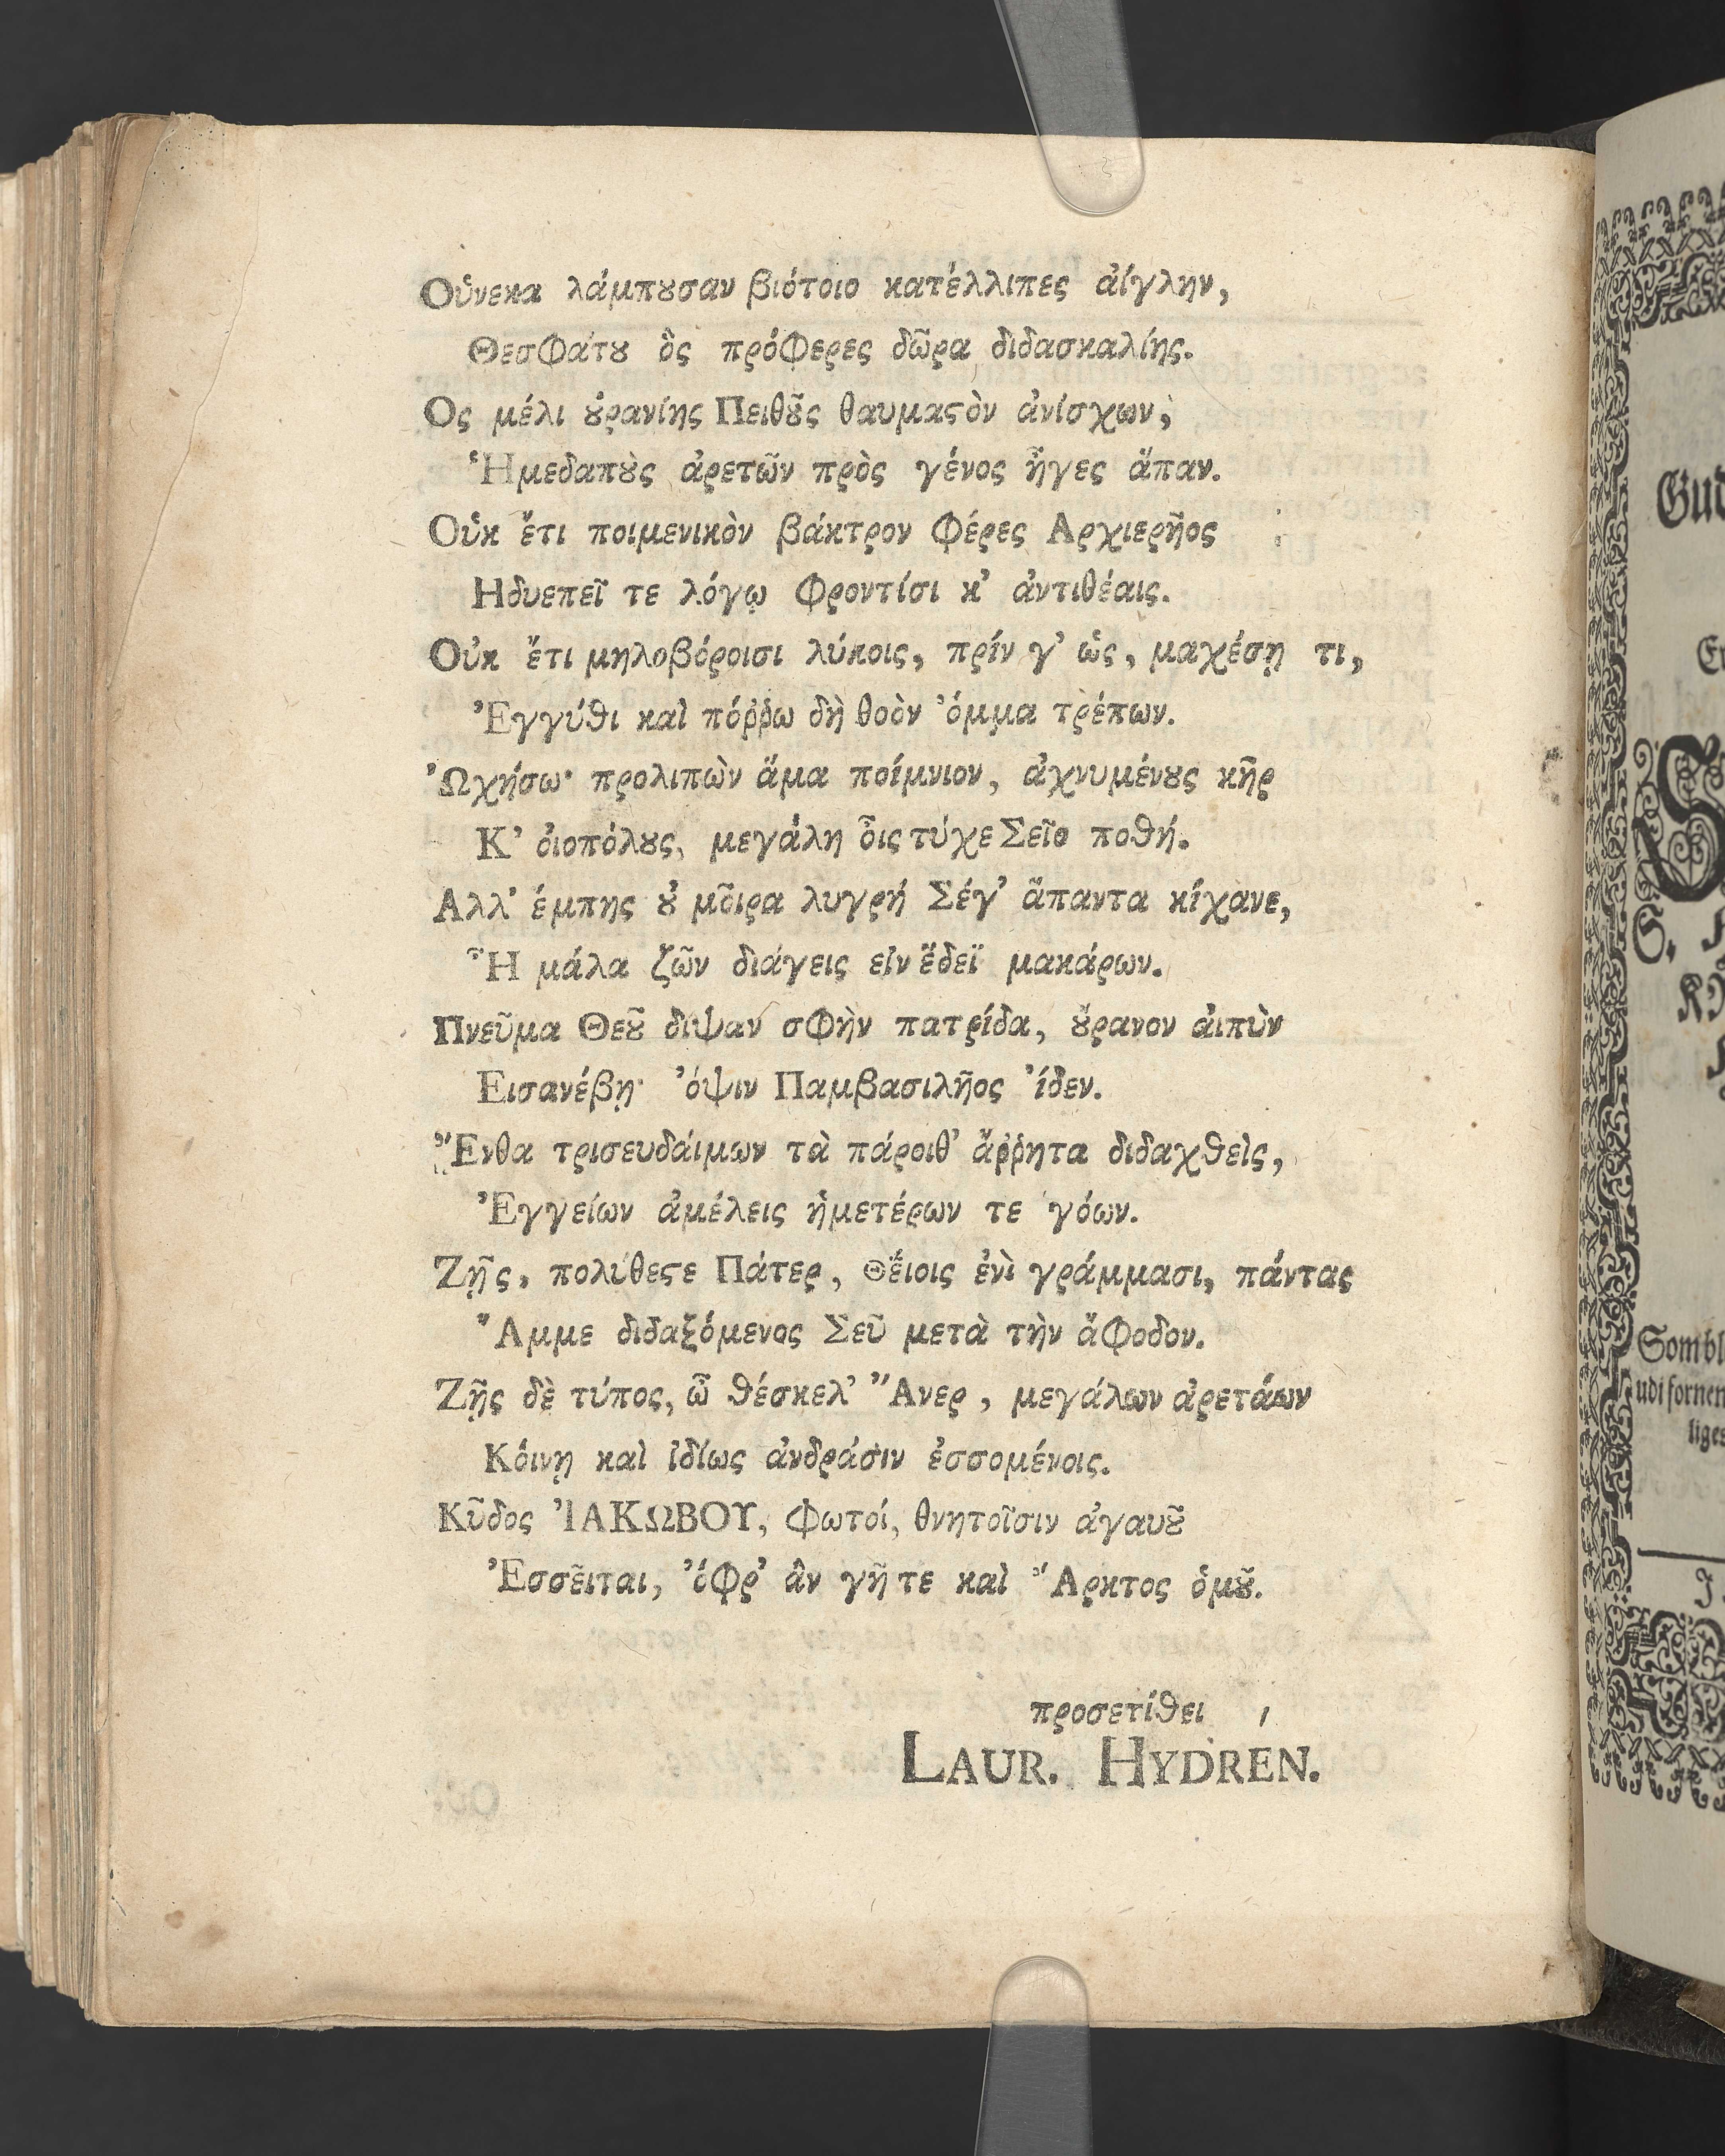 Οὕνεκα λάμπȣσαν βιότοιο κατέλλιπες ἀίγλην,
Θεσφάτȣ ὃς πρόφερες δῶρα διδασκαλίης.
Ος μέλι ȣ̓ρανίης Πειθȣ͂ς θαυμαϛὸν ἀνίσχων,
Ἡμεδαπȣ̀ς ἀρετῶν πρὸς γένος ἦγες ἅπαν.
Οὐκ ἔτι ποιμενικὸν βάκτρον φέρες Αρχιερῆος
Ηδυεπεῖ τε λόγῳ φροντίσι κ' ἀντιθέαις.
Οὐκ ἔτι μηλοβόροισι λύκοις, πρίν γ' ὡς, μαχέσῃ τι,
Ἐγγύθι καὶ πόῤῥω δὴ θοὸν ὄμμα τρέπων.
Ὠχήσω· προλιπὼν ἅμα ποίμνιον, ἀχνυμένȣς κῆρ
Κ' ὀιοπόλȣς, μεγάλη οἷς τύχε Σεῖο ποθή.
Αλλ' έμπης ȣ̓ μοῖρα λυγρή Σέγ' ἅπαντα κίχανε,
Ἦ μάλα ζῶν διάγεις εἰν ἕδεϊ μακάρων.
Πνεῦμα Θεȣ͂ διψαν σφὴν πατρίδα, ȣ̓́ρανον ἀιπὺν
Εισανέβη· ὄψιν Παμβασιλῆος ἴδεν.
Ἔνθα τρισευδάιμων τὰ πάροιθ' ἄῤῥητα διδαχθεὶς,
Ἐγγείων ἀμέλεις ἡμετέρων τε γόων.
Ζῇς, πολύθεϛε Πάτερ, Θέιοις ἐνὶ γράμμασι, πάντας
Ἄμμε διδαξόμενος Σεῦ μετὰ τὴν ἄφοδον.
Ζῇς δὲ τύπος, ὦ θέσκελ' Ἄνερ, μεγάλων ἀρετάων
Κόινῃ καὶ ἰδίως ἀνδράσιν ἐσσομένοις.
Κῦδος ἸΑΚΩΒΟΥ, φωτοί, θνητοῖσιν ἀγαυȣ͂
Ἐσσεῖται, ὄφρ' ἂν γῆ τε καὶ Ἄρκτος ὁμȣ͂.
προσετίθει
LAUR. HYDREN.
Gud
S.
Sombl
udi fornen
liges